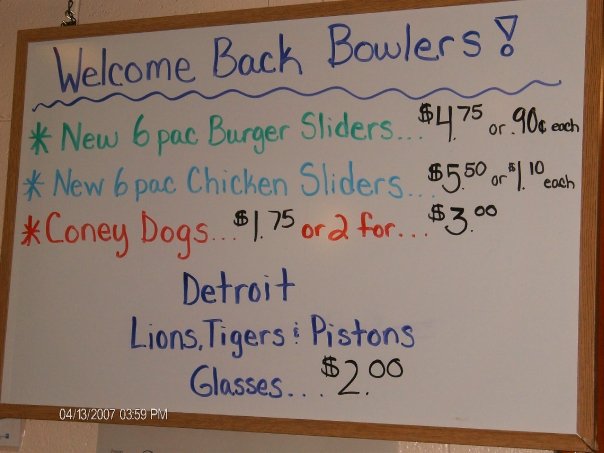 Welcome Back Bowlers!
* New 6 pac Burger Sliders... $4.75 or .90¢ each
* New 6 pac Chicken Sliders... $5.50 or $1.10 each
* Coney Dogs... $1.75 or 2 for... $3.00
Detroit
Lions, Tigers & Pistons
Glasses... $2.00
04/13/2007 03:59 PM